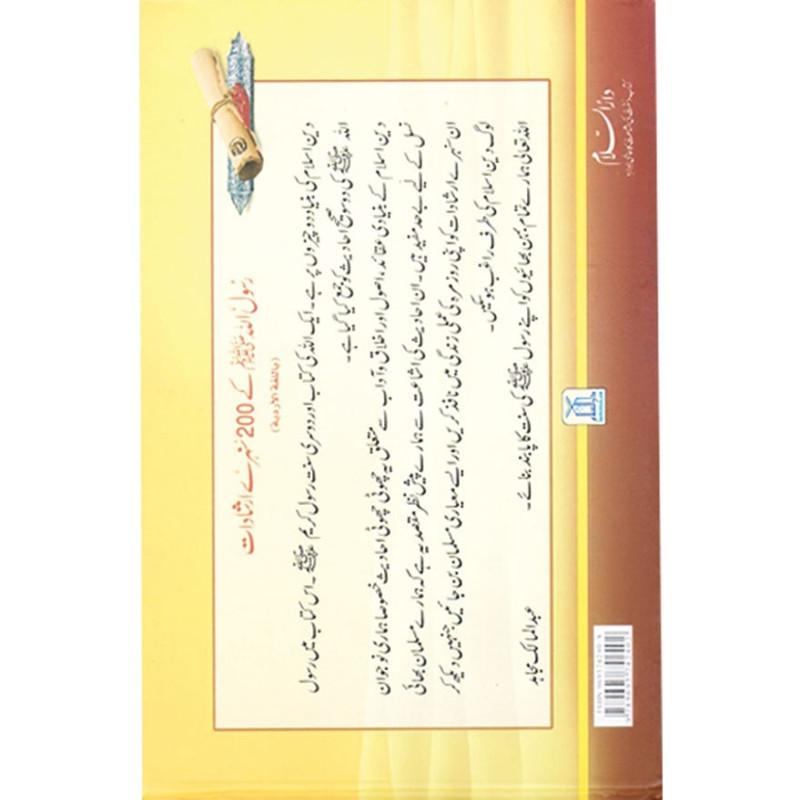 رسول اللہ ﷺ کے 200 سنہرے ارشادات
(باللغة الاردية)
دین اسلام کی بنیاد دو چیزوں پر ہے۔ ایک اللہ کی کتاب اور دوسری سنت رسول کریم ﷺ۔ اس کتاب میں رسول
اللہ ﷺ کی دو سو صحیح احادیث کو جمع کیا گیا ہے۔
دین اسلام کے بنیادی عقائد، اصول اور اخلاق و آداب سے متعلق یہ چھوٹی چھوٹی احادیث خصوصا ہماری نوجوان
نسل کے لیے بے حد مفید ہیں۔ ان احادیث کی اشاعت سے ہمارے پیش نظر مقصد یہ ہے کہ ہمارے مسلمان بھائی
ان سنہرے ارشادات کو اپنی روز مرہ کی عملی زندگی میں نافذ کریں اور ایسے معیاری مسلمان بن جائیں جنہیں دیکھ کر
لوگ دین اسلام کی طرف راغب ہو سکیں۔
اللہ تعالی ہمارے تمام بہن بھائیوں کو اپنے رسول ﷺ کی سنت کا پابند بنائے۔
عبدالمالک مجاہد
دارالسلام